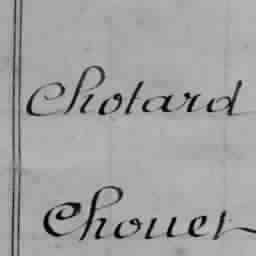 Chotard
Chouet